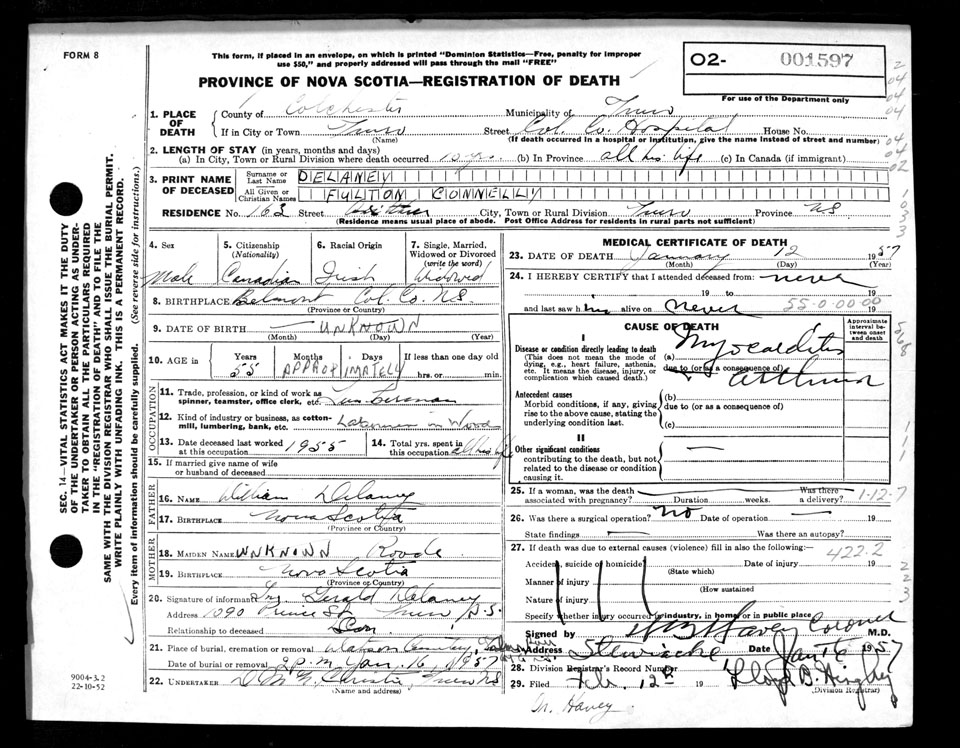 FORM 8
This form, if placed in an envelope, on which is printed "Dominion Statistics—Free, penalty for improper
use $50," and properly addressed will pass through the mail "FREE"
PROVINCE OF NOVA SCOTIA—REGISTRATION OF DEATH
O2- 001597
For use of the Department only
1. PLACE OF DEATH
County of Colchester Municipality of Truro
If in City or Town Truro Street Col. Co. Hospital House No.
(Name) (If death occurred in a hospital or institution, give the name instead of street and number)
2. LENGTH OF STAY (in years, months and days)
(a) In City, Town or Rural Division where death occurred 10 yrs. (b) In Province all his life (c) In Canada (if immigrant)
3. PRINT NAME OF DECEASED
Surname or Last Name DELANEY
All Given or Christian Names FULTON CONNELLY
RESIDENCE No. 163 Street City, Town or Rural Division Truro Province NS
(Residence means usual place of abode. Post Office Address for residents in rural parts not sufficient)
4. Sex Male
5. Citizenship (Nationality) Canadian
6. Racial Origin Irish
7. Single, Married, Widowed or Divorced (write the word) Widowed
8. BIRTHPLACE Belmont Col. Co. N.S.
(Province or Country)
9. DATE OF BIRTH — UNKNOWN
(Month) (Day) (Year)
10. AGE in Years Months Days If less than one day old
55 APPROXIMATELY hrs. or min.
OCCUPATION
11. Trade, profession, or kind of work as spinner, teamster, office clerk, etc. Lumberman
12. Kind of industry or business, as cotton-mill, lumbering, bank, etc. in Woods
13. Date deceased last worked at this occupation 1955
14. Total yrs. spent in this occupation all his life
15. If married give name of wife or husband of deceased
FATHER
16. NAME William Delaney
17. BIRTHPLACE Nova Scotia
(Province or Country)
MOTHER
18. MAIDEN NAME UNKNOWN Roode
19. BIRTHPLACE Nova Scotia
(Province or Country)
20. Signature of informant Sng. Gerald Delaney
Address 1090 Prince St. Truro N.S.
Relationship to deceased Son
21. Place of burial, cremation or removal Watson Cemetery,
Date of burial or removal 2 P.M. Jan. 16, 1957
22. UNDERTAKER Christie, Truro NS
(Name and address)
9004-3.2
22-10-52
SEC. 14—VITAL STATISTICS ACT MAKES IT THE DUTY
OF THE UNDERTAKER OR PERSON ACTING AS UNDER-
TAKER TO OBTAIN ALL THE PARTICULARS REQUIRED
IN THE "REGISTRATION OF DEATH" AND TO FILE THE
SAME WITH THE DIVISION REGISTRAR WHO SHALL ISSUE THE BURIAL PERMIT.
WRITE PLAINLY WITH UNFADING INK. THIS IS A PERMANENT RECORD.
Every item of information should be carefully supplied. (See reverse side for instructions.)
MEDICAL CERTIFICATE OF DEATH
23. DATE OF DEATH January 12 1957
(Month) (Day) (Year)
24. I HEREBY CERTIFY that I attended deceased from: never
19 to 19
and last saw him alive on never 19
55-0-00-00
CAUSE OF DEATH
Approximate interval between onset and death
I
Disease or condition directly leading to death
(This does not mean the mode of dying, e.g., heart failure, asthenia, etc. It means the disease, injury, or complication which caused death.)
(a) Myocarditis
due to (or as a consequence of)
Antecedent causes
Morbid conditions, if any, giving rise to the above cause, stating the underlying condition last.
(b)
due to (or as a consequence of)
(c)
II
Other significant conditions —
contributing to the death, but not related to the disease or condition causing it.
25. If a woman, was the death associated with pregnancy? Duration weeks. Was there a delivery?
1-12-7
26. Was there a surgical operation? No Date of operation — 19
State findings — Was there an autopsy?
27. If death was due to external causes (violence) fill in also the following:—
422.2
Accident, suicide or homicide Date of injury 19
(State which)
Manner of injury
(How sustained)
Nature of injury
Specify whether injury occurred in industry, in home or in public place
Signed by Havey Coroner M.D.
Address Stewiacke Date Jan 16 1957
28. Division Registrar's Record Number
29. Filed Feb. 12th Lloyd B.
(Division Registrar)
Dr. Havey.